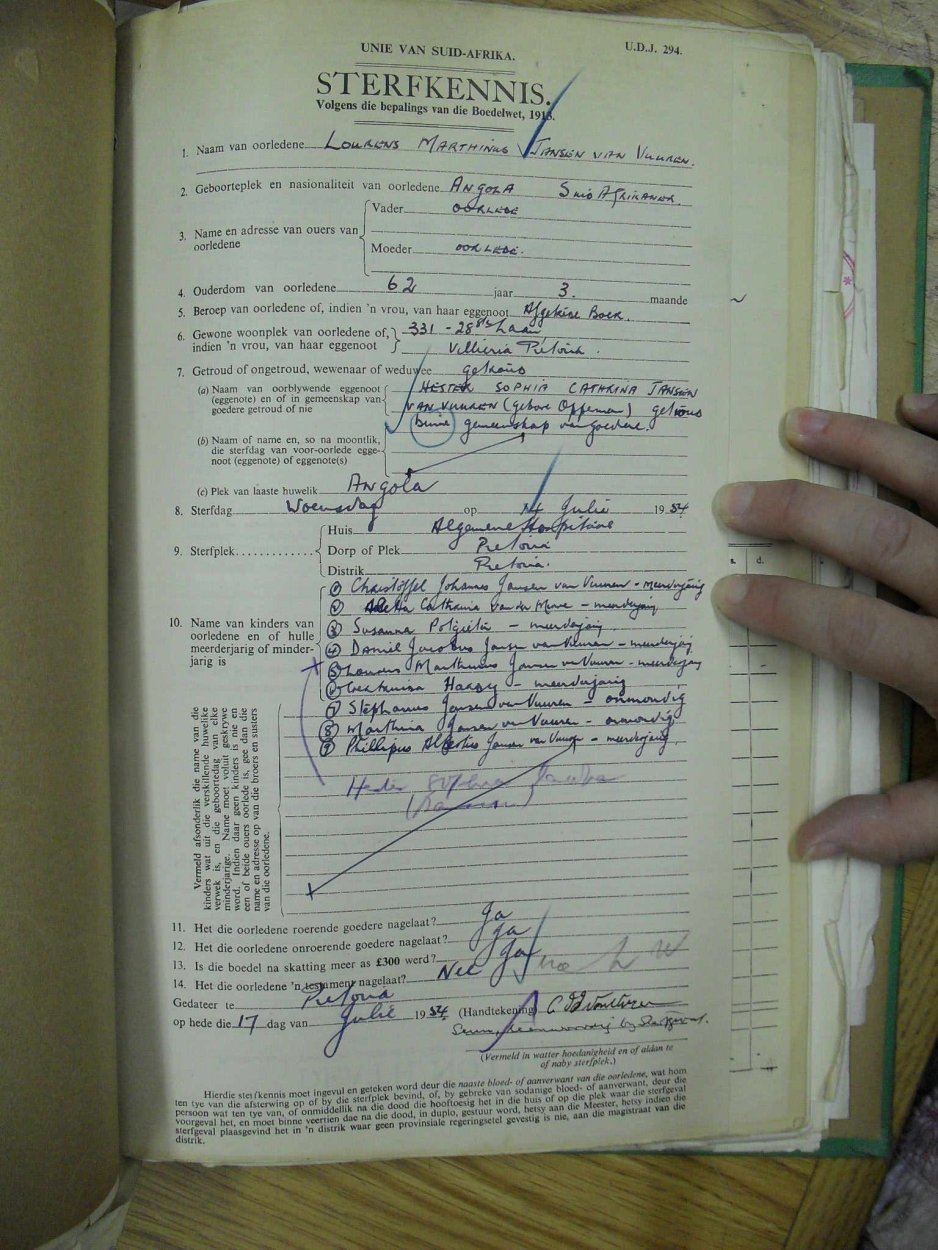 UNIE VAN SUID-AFRIKA. U.D.J. 294.
STERFKENNIS.
Volgens die bepalings van die Boedelwet, 1913.
1. Naam van oorledene LOURENS MARTHINUS JANSEN VAN VUUREN.
2. Geboorteplek en nasionaliteit van oorledene ANGOLA SUID AFRIKANER.
3. Name en adresse van ouers van oorledene
Vader OORLEDE
Moeder OORLEDE.
4. Ouderdom van oorledene 62 jaar 3. maande
5. Beroep van oorledene of, indien 'n vrou, van haar eggenoot Afgetree Boer.
6. Gewone woonplek van oorledene of, 331 - 28ste Laan
indien 'n vrou, van haar eggenoot Villieria Pretoria.
7. Getroud of ongetroud, wewenaar of weduwee getroud
(a) Naam van oorblywende eggenoot HESTER SOPHIA CATHRINA JANSEN
(eggenote) en of in gemeenskap van VAN VUUREN (gebore Opperman) getroud
goedere getroud of nie binne gemeenskap van goedere.
(b) Naam of name en, so na moontlik,
die sterfdag van voor-oorlede egge-
noot (eggenote) of eggenote(s)
(c) Plek van laaste huwelik Angola
8. Sterfdag Woensdag op Julie 1954
9. Sterfplek
Huis Algemene Hospitaal
Dorp of Plek Pretoria
Distrik Pretoria.
10. Name van kinders van
oorledene en of hulle
meerderjarig of minder-
jarig is
(1) Christoffel Johannes Jansen van Vuuren - meerderjarig
(2) Aletta Catharina van der Merwe - meerderjarig
(3) Susanna Potgieter - meerderjarig
(4) Daniel Jacobus Jansen van Vuuren - meerderjarig
(5) Lourens Marthinus Jansen van Vuuren - meerderjarig
(6) Harry - meerderjarig
(7) Stephanus Jansen van Vuuren - onmondig
(8) Marthina Jansen van Vuuren - onmondig
(9) Phillipus Albertus Jansen van Vuuren - meerderjarig.
Hester Sophia
Vermeld afsonderlik die name van die
kinders wat uit die verskillende huwelike
verwek is, en die geboortedag van elke
minderjarige. Name moet voluit geskrywe
word. Indien daar geen kinders is nie en
een of beide ouers oorlede is, gee dan die
name en adresse op van die broers en susters
van die oorledene.
11. Het die oorledene roerende goedere nagelaat? Ja
12. Het die oorledene onroerende goedere nagelaat? Ja
13. Is die boedel na skatting meer as £300 werd? Ja
14. Het die oorledene 'n testament nagelaat? Nee
Gedateer te Pretoria
op hede die 17 dag van Julie 1954 (Handtekening)
(Vermeld in watter hoedanigheid en of aldan te
of naby sterfplek.)
Hierdie sterfkennis moet ingevul en geteken word deur die naaste bloed- of aanverwant van die oorledene, wat hom
ten tye van die afsterwing op of by die sterfplek bevind, of, by gebreke van sodange bloed- of aanverwant, deur die
persoon wat ten tye van, of onmiddellik na die dood die hooftoesig het in die huis of op die plek waar die sterfgeval
voorgeval het, en moet binne veertien dae na die dood, in duplo, gestuur word, hetsy aan die Meester, hetsy indien die
sterfgeval plaasgevind het in 'n distrik waar geen provinsiale regeringsetel gevestig is nie, aan die magistraat van die
distrik.
s. d.